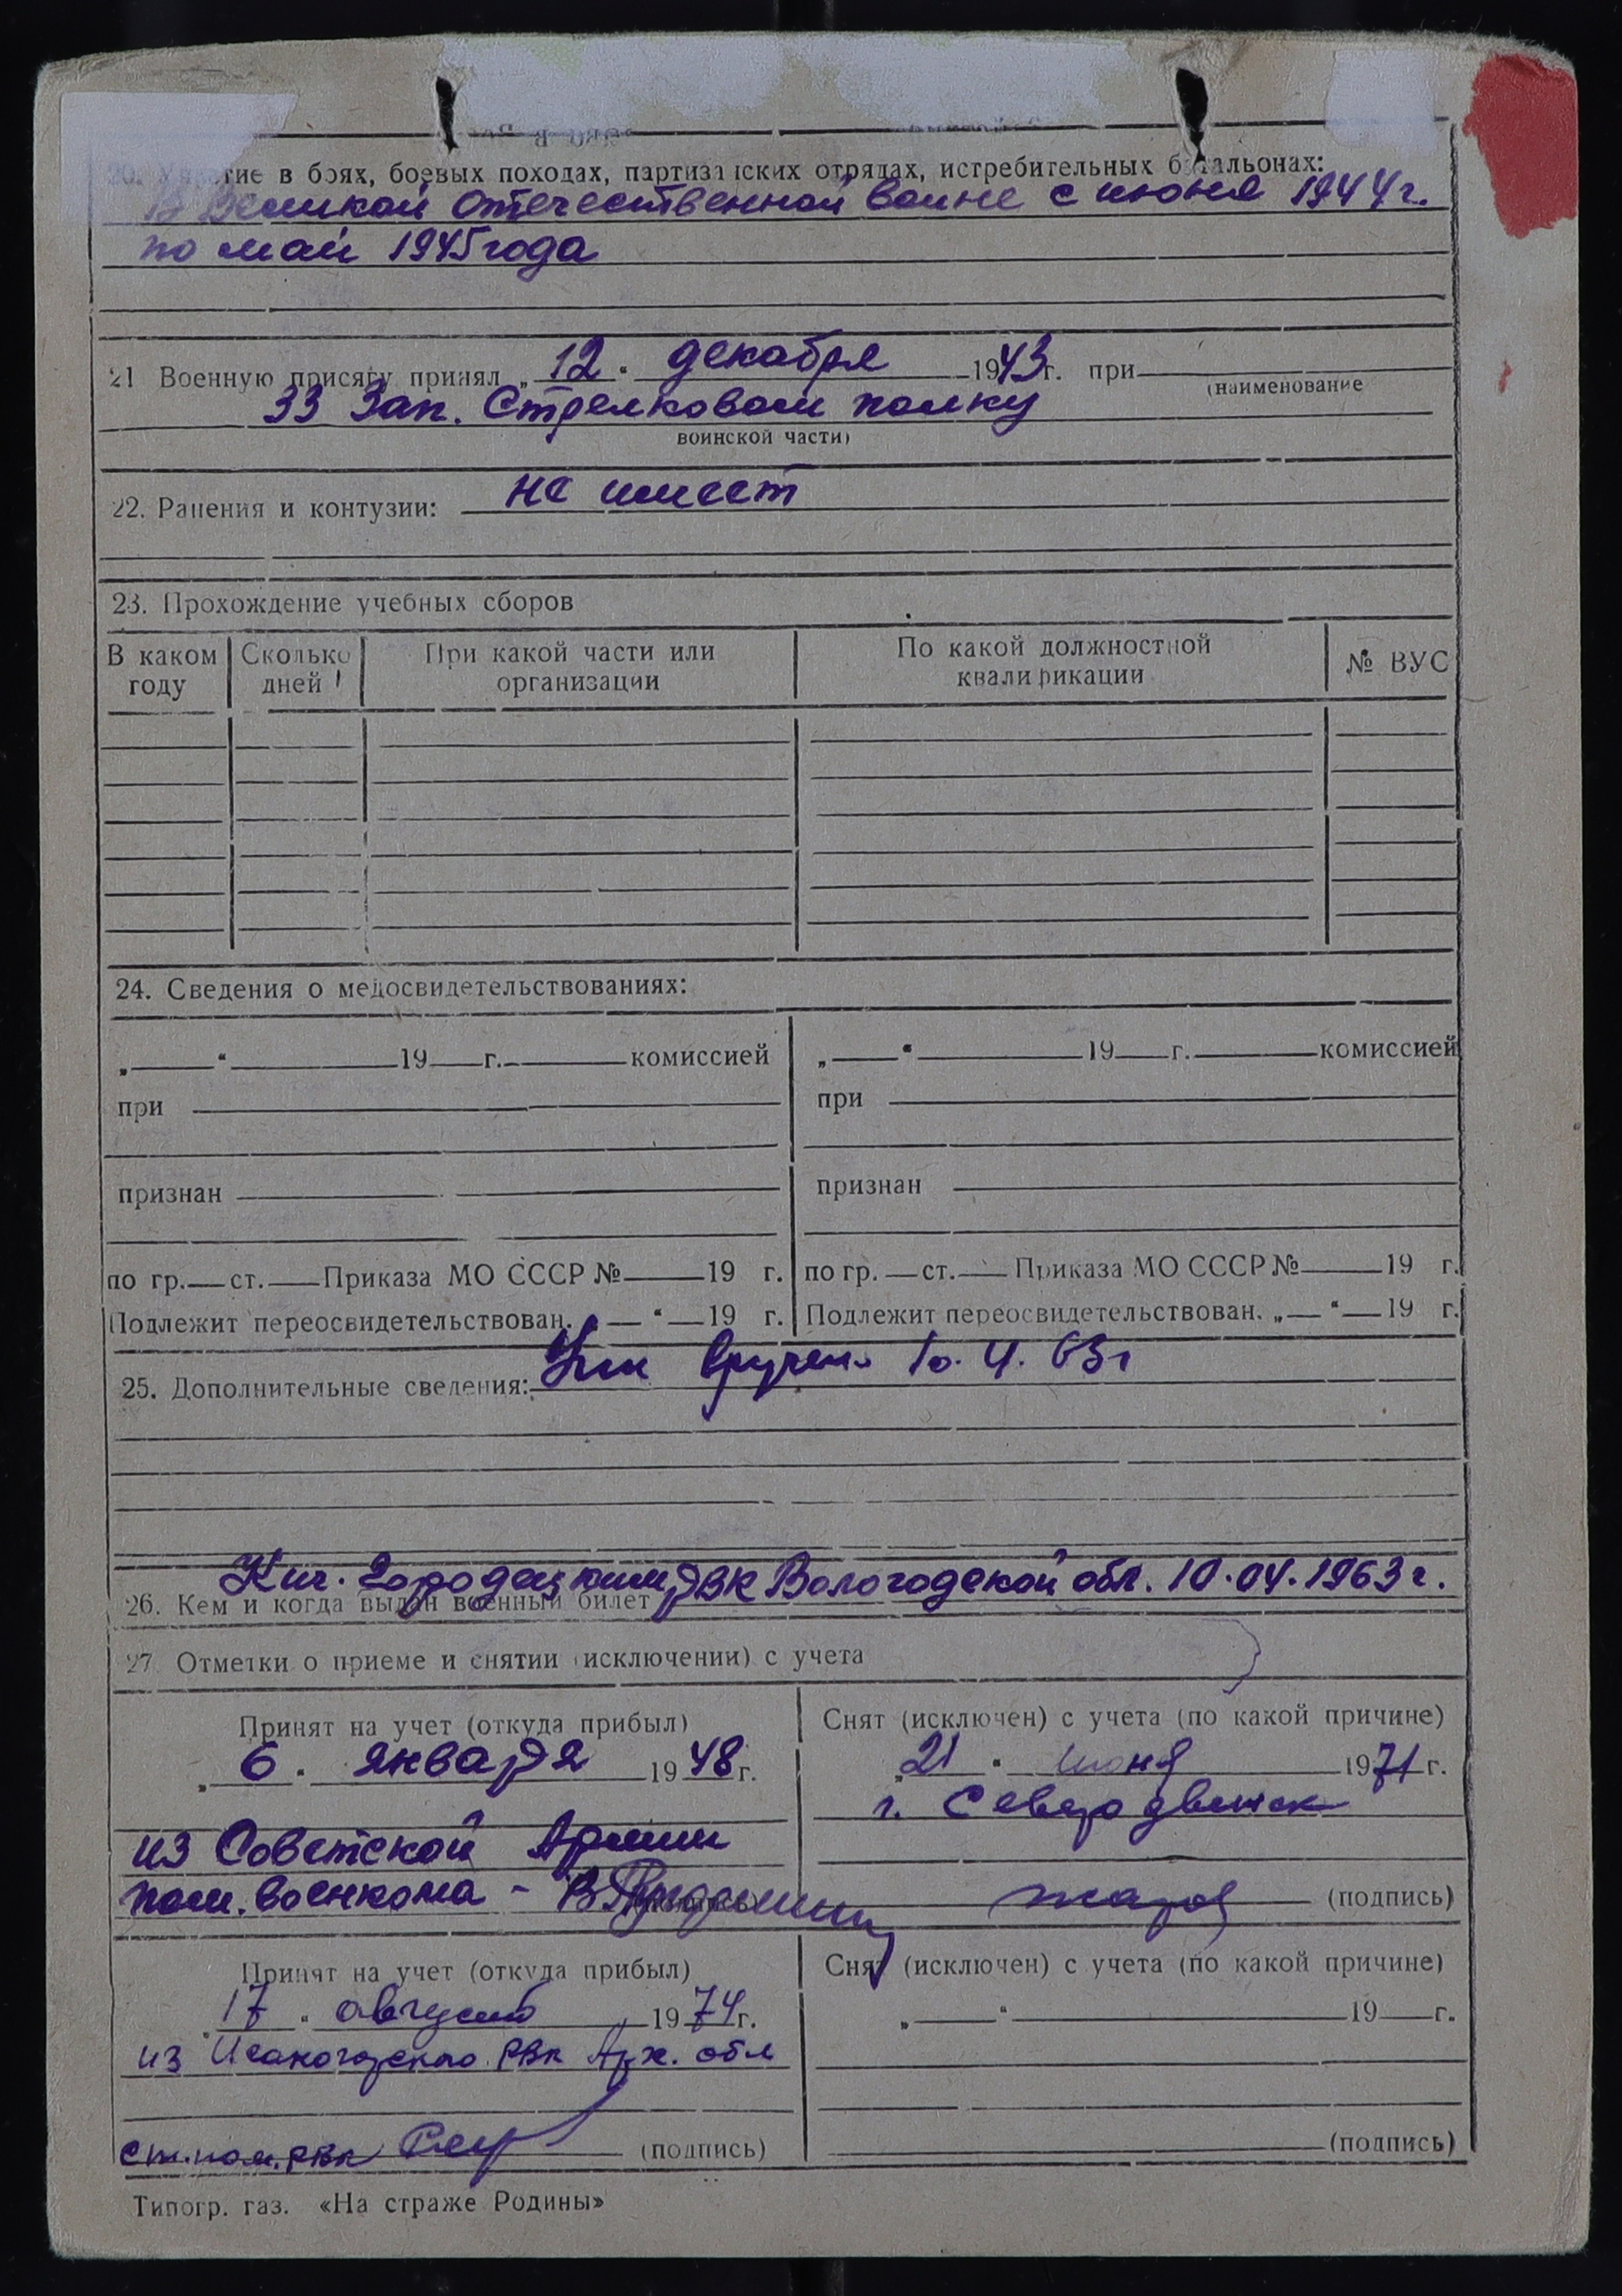 20. Участие в боях, боевых походах, партизанских отрядах, истребительных батальонах:
В Великой Отечественной воине с июня 1944 г.
по май 1945 года
21 Военную присягу принял „12“ декабря 1943 г. при
(наименование
33 Зап. Стрелковом полку
воинской части)
22. Ранения и контузии: не имеет
23. Прохождение учебных сборов
В каком году Сколько дней При какой части или организации По какой должностной квалификации № ВУС
24. Сведения о медосвидетельствованиях:
„ “ 19 г. комиссией „ “ 19 г. комиссией
при при
признан признан
по гр. ст. Приказа МО СССР № 19 г. по гр. ст. Приказа МО СССР № 19 г.
Подлежит переосвидетельствован. „ “ 19 г. Подлежит переосвидетельствован. „ “ 19 г.
25. Дополнительные сведения: вручен 10. 4. 63 г
Кич. Городецким РВК Вологодской обл. 10.04.1963 г.
26. Кем и когда выдан военный билет
27. Отметки о приеме и снятии (исключении) с учета
Принят на учет (откуда прибыл)
„6“ января 1948 г.
из Советской Армии
пом. военкома -
Снят (исключен) с учета (по какой причине)
„21“ июня 1971 г.
г. Северодвинск
(подпись)
Принят на учет (откуда прибыл)
„17“ августа 1974 г.
из Исакогорского РВК Арх. обл
ст. пом. РВК (подпись)
Снят (исключен) с учета (по какой причине)
„ “ 19 г.
(подпись)
Типогр. газ. «На страже Родины»